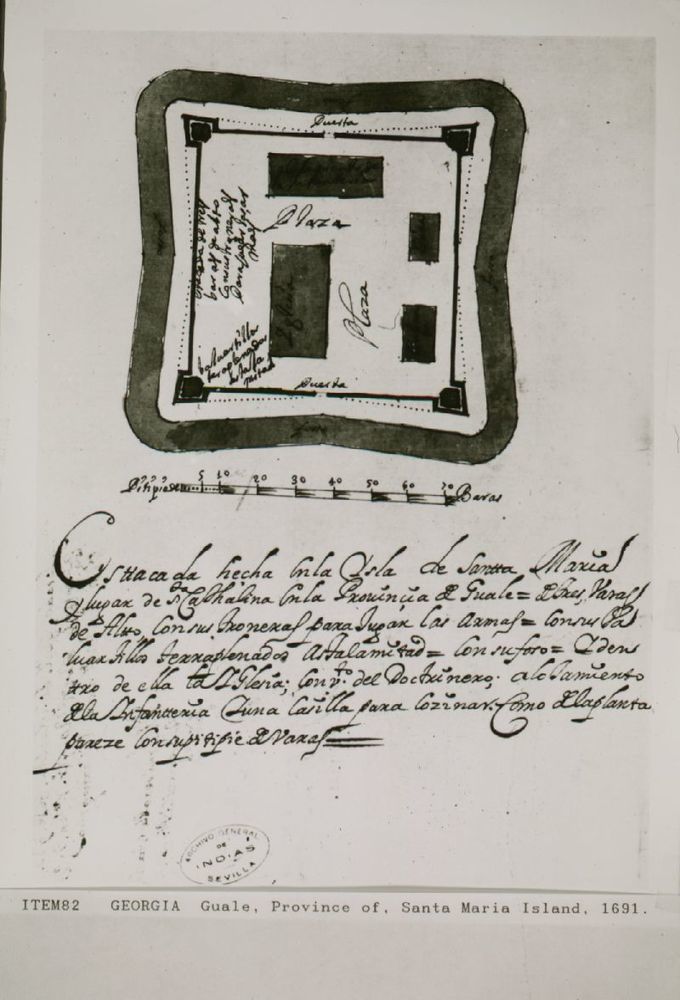 Puerta
Plaza
Plaza
Yglesia
Estacada de tres
baras de alto
Puerta
foso
Pitipie de
5 10 20 30 40 50 60 70 Baras
Estacada hecha en la Ysla de Santta Maria
Y lugar de s.ta Cathalina en la Provinçia de Guale= de tres, Varas,
de Alto, Con sus troneras, para Jugar las armas= Con sus Ba
luartillos terraplenados Asta la mitad= Con su foso= Y den
tro de ella la Yglesia; Conv.to del Doctrinero; aloJamiento
de la Ynfanteria Y una Casilla para Cozinar. Como de la planta
pareze Con su pitipie de Varas
ARCHIVO GENERAL
DE
INDIAS
SEVILLA
ITEM82 GEORGIA Guale, Province of, Santa Maria Island, 1691.